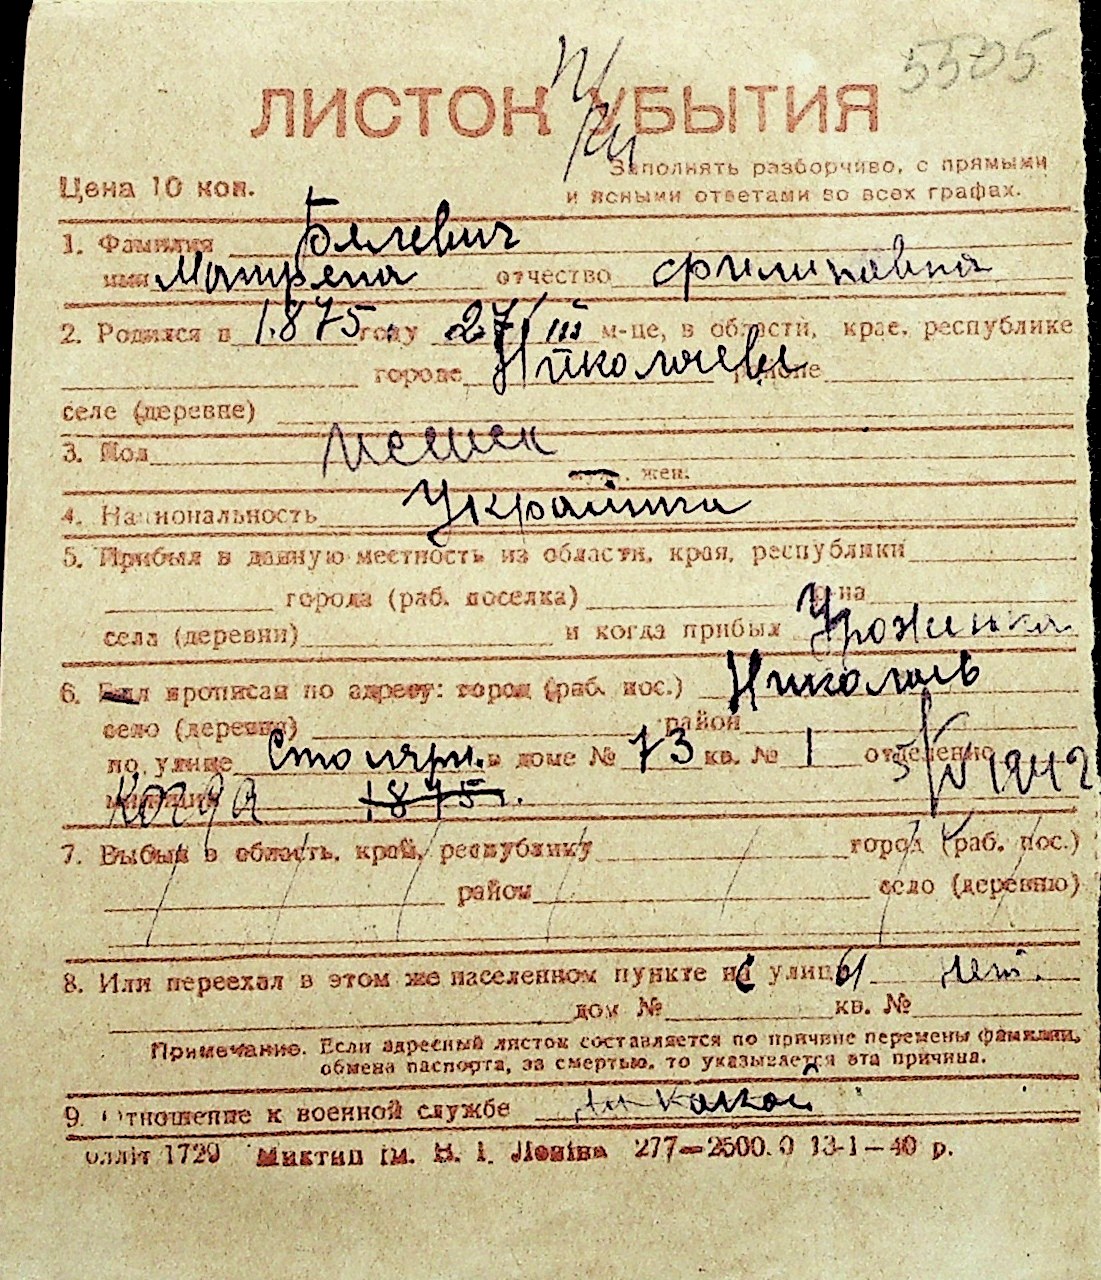 5505
ЛИСТОК УБЫТИЯ
Цена 10 коп.
Заполнять разборчиво, с прямыми
и ясными ответами во всех графах.
1. Фамилия Бялевич
имя Матрена отчество Филиповна
2. Родился в 1875 году 27/III м-це, в области, крае, республике
городе Николаеве районе
селе (деревне)
3. Пол женск
муж. жен.
4. Национальность Украинка
5. Прибыл в данную местность из области, края, республики
города (раб. поселка) р-на
села (деревни) и когда прибыл Уроженка
6. Был прописан по адресу: город (раб. пос.) Николаев
село (деревня) район
по улице Столярн. в доме № 73 кв. № 1 отделению
милиции Когда 1875. 5/IV 1942
7. Выбыл в область, край, республику город (раб. пос.)
район село (деревню)
8. Или переехал в этом же населенном пункте на улицы нет.
дом № кв. №
Примечание. Если адресный листок составляется по причине перемены фамилии,
обмена паспорта, за смертью, то указывается эта причина.
9. Отношение к военной службе
олліт 1729 Миктип ім. В. І. Леніна 277—2500.0 13-1—40 р.